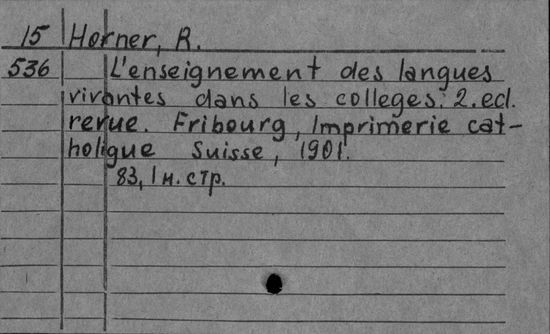 15 Horner, R.
536 L'enseignement des langues
vivantes dans les colleges. 2. ed.
revue. Fribourg, Imprimerie cat-
holique Suisse, 1901.
83, 1 н. стр.